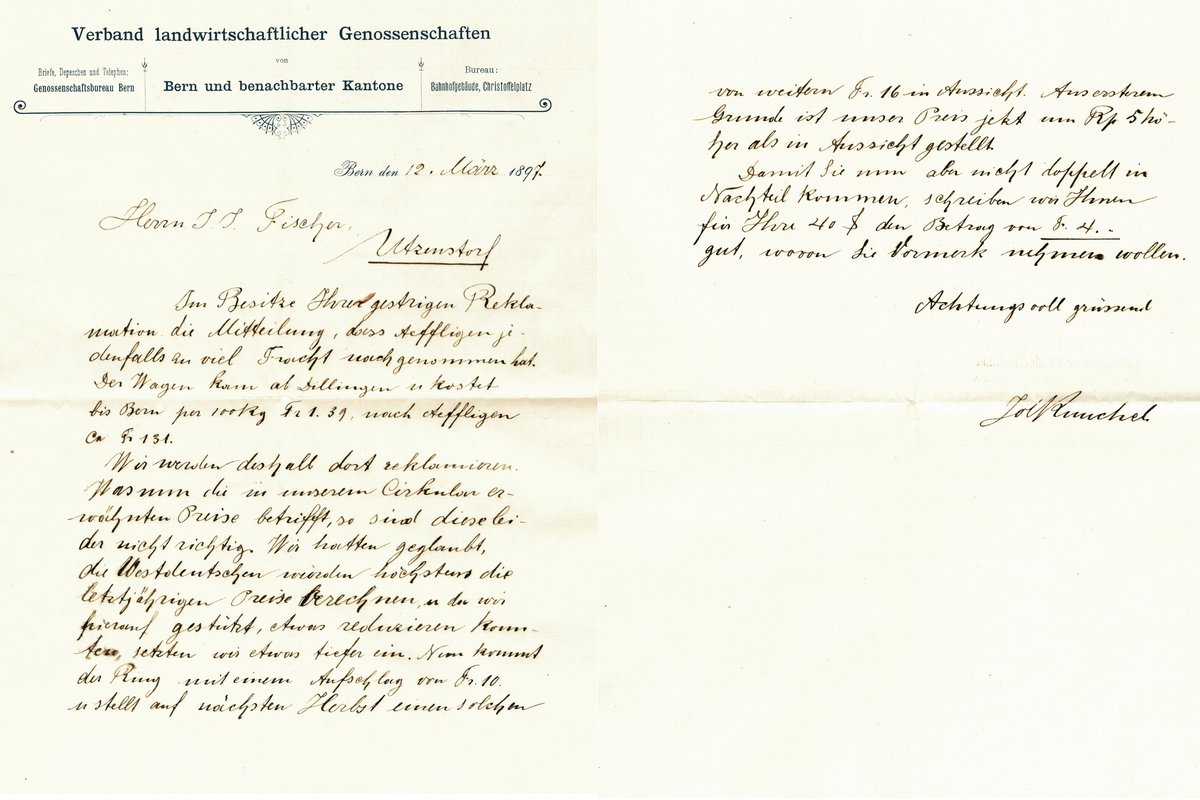 Verband landwirtschaftlicher Genossenschaften
von
Bern und benachbarter Kantone
Briefe, Depeschen und Telephon:
Genossenschaftsbureau Bern
Bureau:
Bahnhofgebäude, Christoffelplatz
Bern den 12. März 1897.
Herrn J. J. Fischer,
Utzenstorf
Im Besitze Ihrer gestrigen Rekla-
mation die Mitteilung, dass Aeffligen je-
denfalls zu viel Fracht nachgenommen hat.
Der Wagen kam ab Dillingen u kostet
bis Bern per 100Kg Fr 1.39, nach Aeffligen
Ca Fr 131.
Wir werden deshalb dort reklamieren.
Was nun die in unserem Cirkular er-
wähnten Preise betrifft, so sind diese lei-
der nicht richtig. Wir hatten geglaubt,
die Westdeutschen würden höchstens die
letztjährigen Preise berechnen, u da wir
hierauf gestützt, etwas reduzieren konn-
ten, setzten wir etwas tiefer ein. Nun kommt
der Ring mit einem Aufschlag von Fr. 10.
u stellt auf nächsten Herbst einen solchen
von weitern Fr. 16 in Aussicht. Aus ersterem
Grunde ist unser Preis jetzt um Rp 5 hö-
her als in Aussicht gestellt.
Damit Sie nun aber nicht doppelt in
Nachteil kommen, schreiben wir Ihnen
für Ihre 40 den Betrag von Fr. 4.-
gut, wovon Sie Vormerk nehmen wollen.
Achtungsvoll grüssend